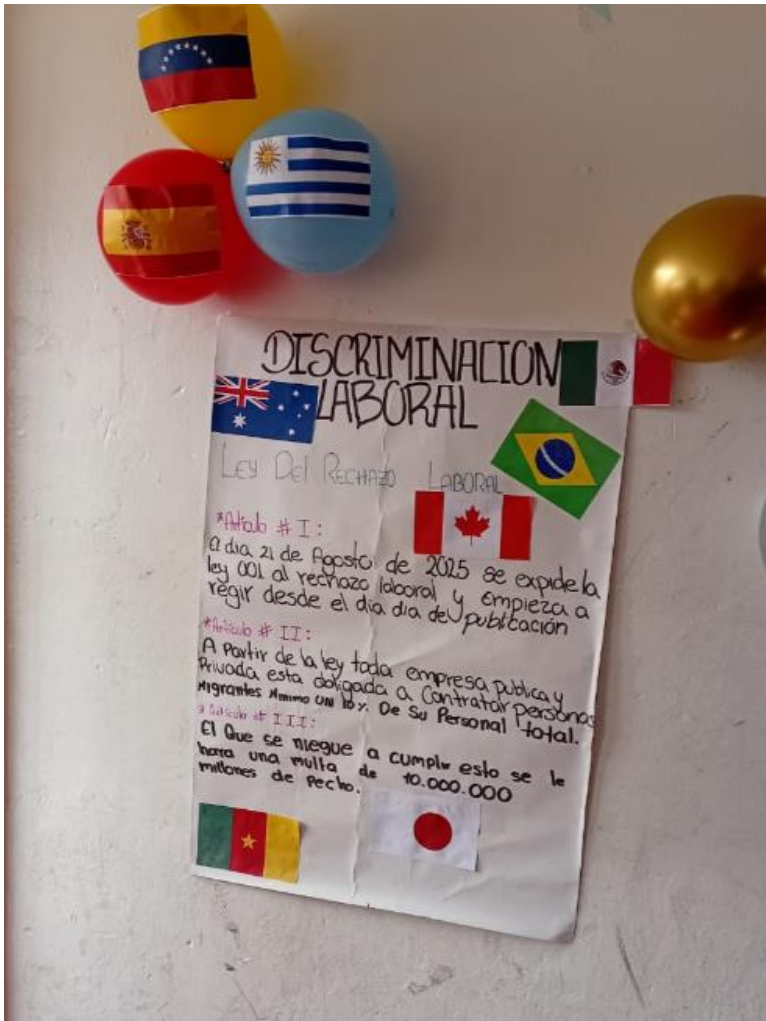 DISCRIMINACION
LABORAL
LEY DEL RECHAZO LABORAL
*Articulo # I:
El dia 21 de Agosto de 2025 se expide la
ley 001 al rechazo laboral y empieza a
regir desde el dia dia de publicación
*Articulo # II:
A Partir de la ley toda empresa publica y
Privada esta obligada a Contratar personas
Migrantes Minimo UN 10%. De Su Personal total.
*Articulo # III:
El Que se niegue a cumplir esto se le
hara una multa de 10.000.000
millones de Pecho.